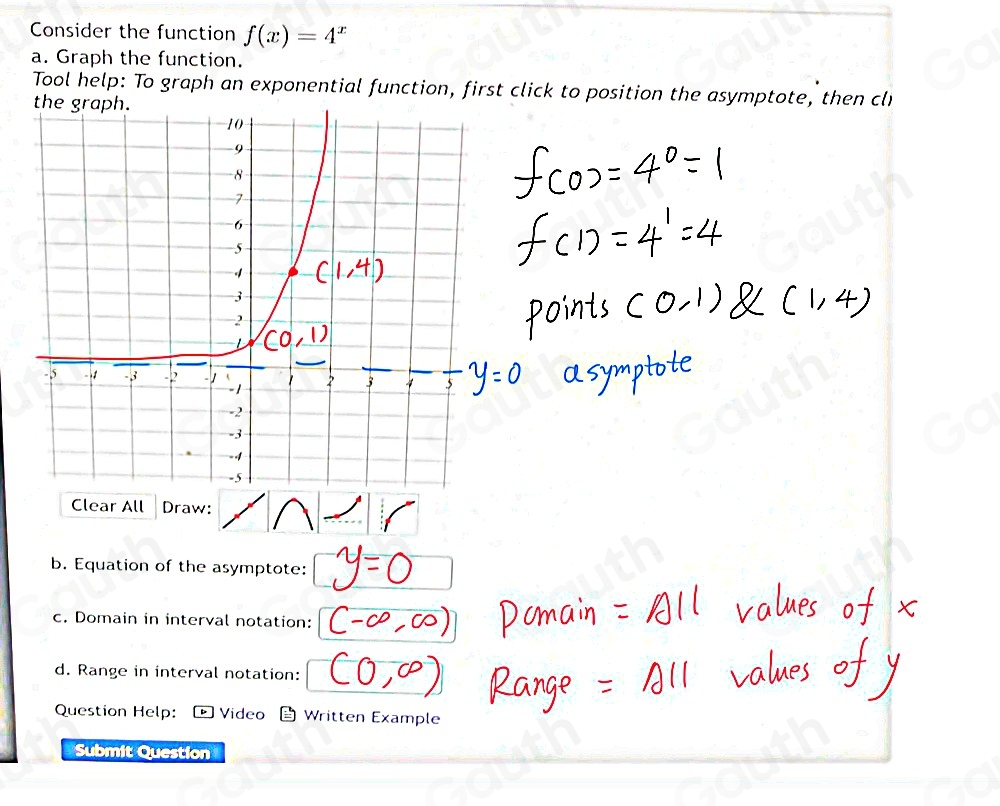 Consider the function f(x) = 4^x
a. Graph the function.
Tool help: To graph an exponential function, first click to position the asymptote, then cli
the graph.
10
9
8
7
6
5
4 (1,4)
3
2
1 (0,1)
-5 -4 -3 -2 -1 1 2 3 4 5
-1
-2
-3
-4
-5
f(0) = 4^0 = 1
f(1) = 4^1 = 4
points (0,1) & (1,4)
y=0 asymptote
Clear All Draw:
b. Equation of the asymptote: y=0
c. Domain in interval notation: (-∞,∞)
Domain = All values of x
d. Range in interval notation: (0,∞)
Range = All values of y
Question Help: Video Written Example
Submit Question
Gauth